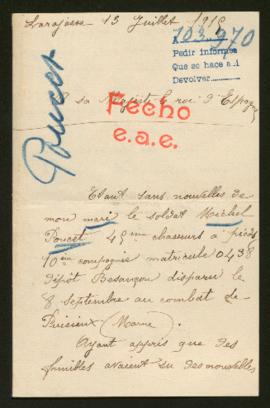 Larajasse 13 Juillet 1915
103.970
Pedir informes
Que se hace a.i
Devolver
A sa Majesté le roi d'Espagne
Poucet
Fecho
e.a.e.
Etant sans nouvelles de
mon mari le soldat Michel
Poucet 49ème chasseurs à pieds
10ème compagnie matricule 0438
dépôt Besançon disparu le
8 septembre au combat de
Puisieux (Marne)
Ayant appris que des
familles avaient eu des nouvelles